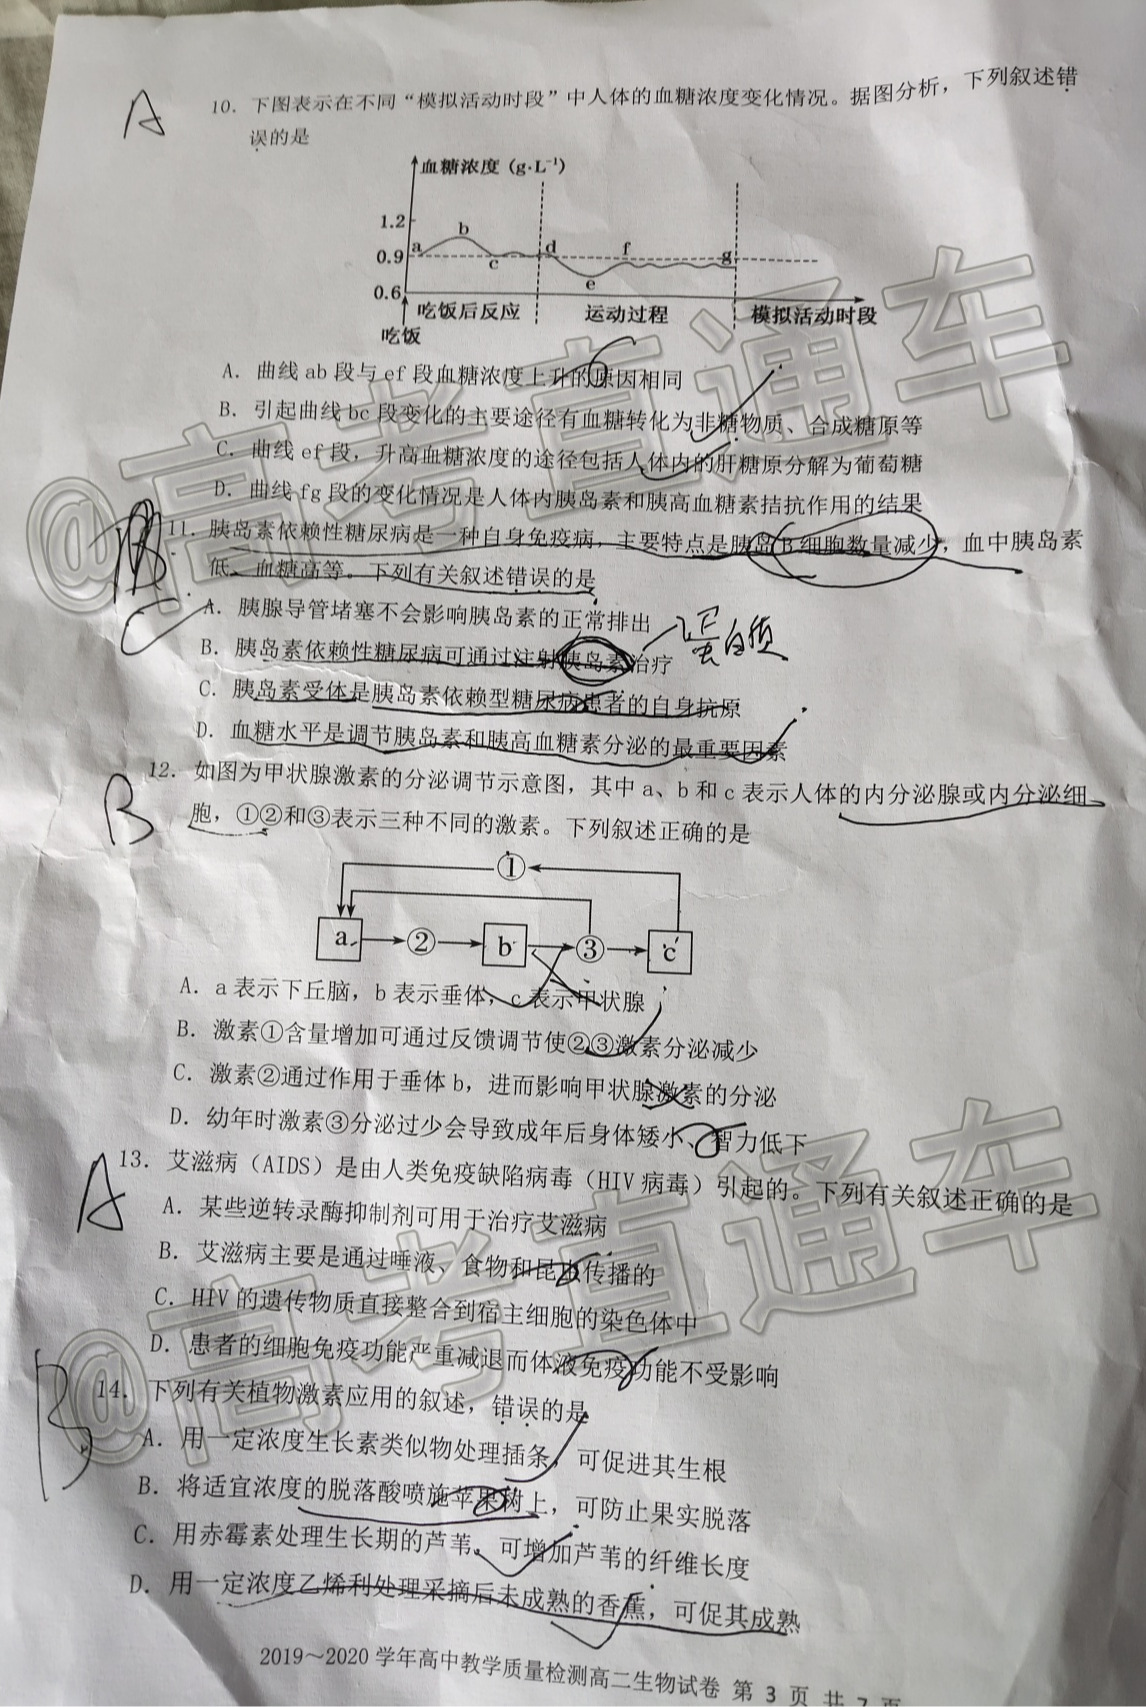 A
10. 下图表示在不同“模拟活动时段”中人体的血糖浓度变化情况。据图分析，下列叙述错
误的是
血糖浓度 (g·L⁻¹)
1.2
0.9
0.6
a b c d e f g
吃饭后反应 运动过程 模拟活动时段
吃饭
A. 曲线ab段与ef段血糖浓度上升的原因相同
B. 引起曲线bc段变化的主要途径有血糖转化为非糖物质、合成糖原等
C. 曲线ef段，升高血糖浓度的途径包括人体内的肝糖原分解为葡萄糖
D. 曲线fg段的变化情况是人体内胰岛素和胰高血糖素拮抗作用的结果
11. 胰岛素依赖性糖尿病是一种自身免疫病，主要特点是胰岛B细胞数量减少，血中胰岛素
低、血糖高等。下列有关叙述错误的是
C
A. 胰腺导管堵塞不会影响胰岛素的正常排出
B. 胰岛素依赖性糖尿病可通过注射胰岛素治疗
蛋白质
C. 胰岛素受体是胰岛素依赖型糖尿病患者的自身抗原
D. 血糖水平是调节胰岛素和胰高血糖素分泌的最重要因素
B
12. 如图为甲状腺激素的分泌调节示意图，其中a、b和c表示人体的内分泌腺或内分泌细
胞，①②和③表示三种不同的激素。下列叙述正确的是
①
a ② b ③ c
A. a表示下丘脑，b表示垂体，c表示甲状腺
B. 激素①含量增加可通过反馈调节使②③激素分泌减少
C. 激素②通过作用于垂体b，进而影响甲状腺激素的分泌
D. 幼年时激素③分泌过少会导致成年后身体矮小、智力低下
A
13. 艾滋病（AIDS）是由人类免疫缺陷病毒（HIV病毒）引起的。下列有关叙述正确的是
A. 某些逆转录酶抑制剂可用于治疗艾滋病
B. 艾滋病主要是通过唾液、食物和昆虫传播的
C. HIV的遗传物质直接整合到宿主细胞的染色体中
D. 患者的细胞免疫功能严重减退而体液免疫功能不受影响
B
14. 下列有关植物激素应用的叙述，错误的是
A. 用一定浓度生长素类似物处理插条，可促进其生根
B. 将适宜浓度的脱落酸喷施苹果树上，可防止果实脱落
C. 用赤霉素处理生长期的芦苇，可增加芦苇的纤维长度
D. 用一定浓度乙烯利处理采摘后未成熟的香蕉，可促其成熟
2019～2020学年高中教学质量检测高二生物试卷 第 3 页 共 7 页
@高考直通车
@高考直通车